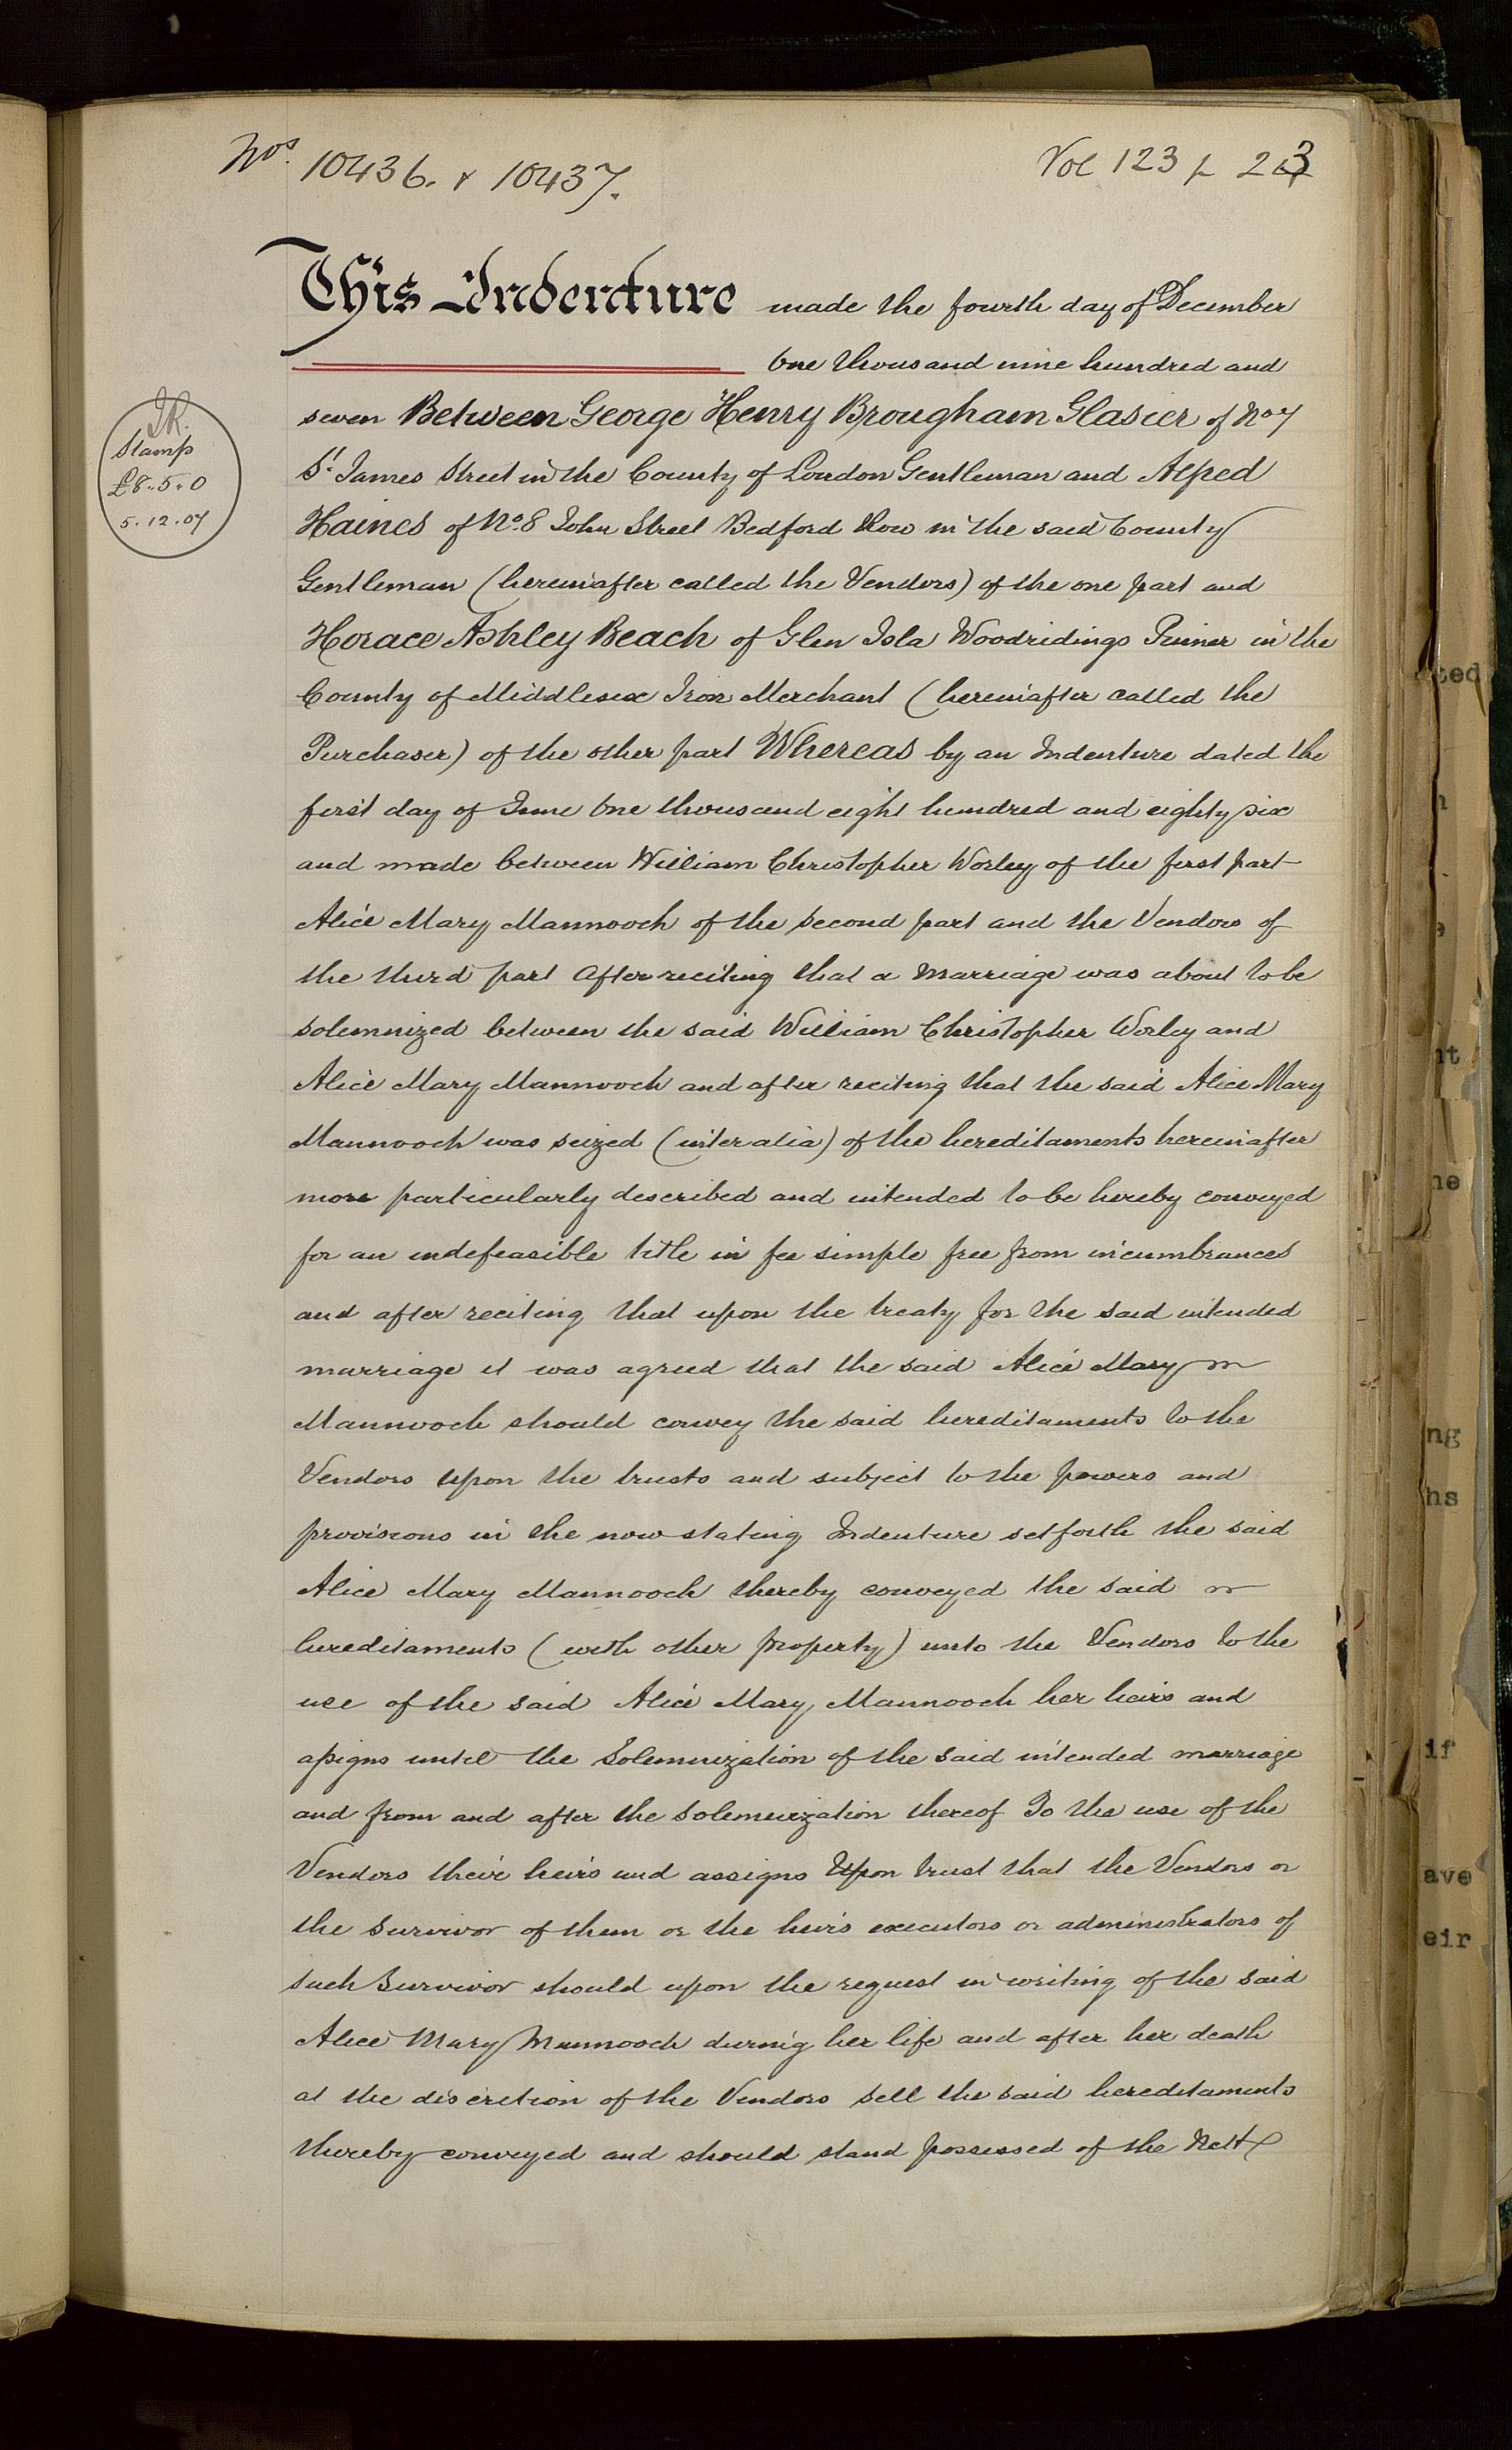 Nos. 10436. & 10437.
Vol 123 p 23
This Indenture made the fourth day of December
One thousand nine hundred and
seven Between George Henry Brougham Glasier of No 7
St. James Street in the County of London Gentleman and Alfred
Haines of No. 8 John Street Bedford Row in the said County
Gentleman (hereinafter called the Vendors) of the one part and
Horace Ashley Beach of Glen Isla Woodridings Pinner in the
County of Middlesex Iron Merchant (hereinafter called the
Purchaser) of the other part Whereas by an Indenture dated the
first day of June One thousand eight hundred and eighty six
and made between William Christopher Worley of the first part
Alice Mary Mannooch of the second part and the Vendors of
the third part After reciting that a marriage was about to be
solemnized between the said William Christopher Worley and
Alice Mary Mannooch and after reciting that the said Alice Mary
Mannooch was seized (inter alia) of the hereditaments hereinafter
more particularly described and intended to be hereby conveyed
for an indefeasible title in fee simple free from incumbrances
and after reciting that upon the treaty for the said intended
marriage it was agreed that the said Alice Mary
Mannooch should convey the said hereditaments to the
Vendors upon the trusts and subject to the powers and
provisions in the now stating Indenture set forth the said
Alice Mary Mannooch thereby conveyed the said
hereditaments (with other property) unto the Vendors to the
use of the said Alice Mary Mannooch her heirs and
assigns until the Solemnization of the said intended marriage
and from and after the solemnization thereof To the use of the
Vendors their heirs and assigns Upon trust that the Vendors or
the survivor of them or the heirs executors or administrators of
such survivor should upon the request in writing of the said
Alice Mary Mannooch during her life and after her death
at the discretion of the Vendors sell the said hereditaments
thereby conveyed and should stand possessed of the Nett
Stamp
£8.5.0
5.12.07
ted
nt
ne
ng
hs
if
ave
eir